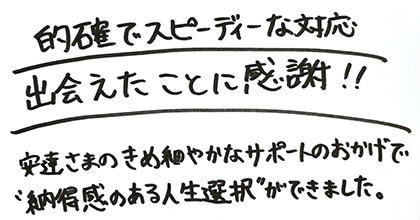 的確でスピーディーな対応
出会えたことに感謝!!
安達さまのきめ細やかなサポートのおかげで
"納得感のある人生選択"ができました。